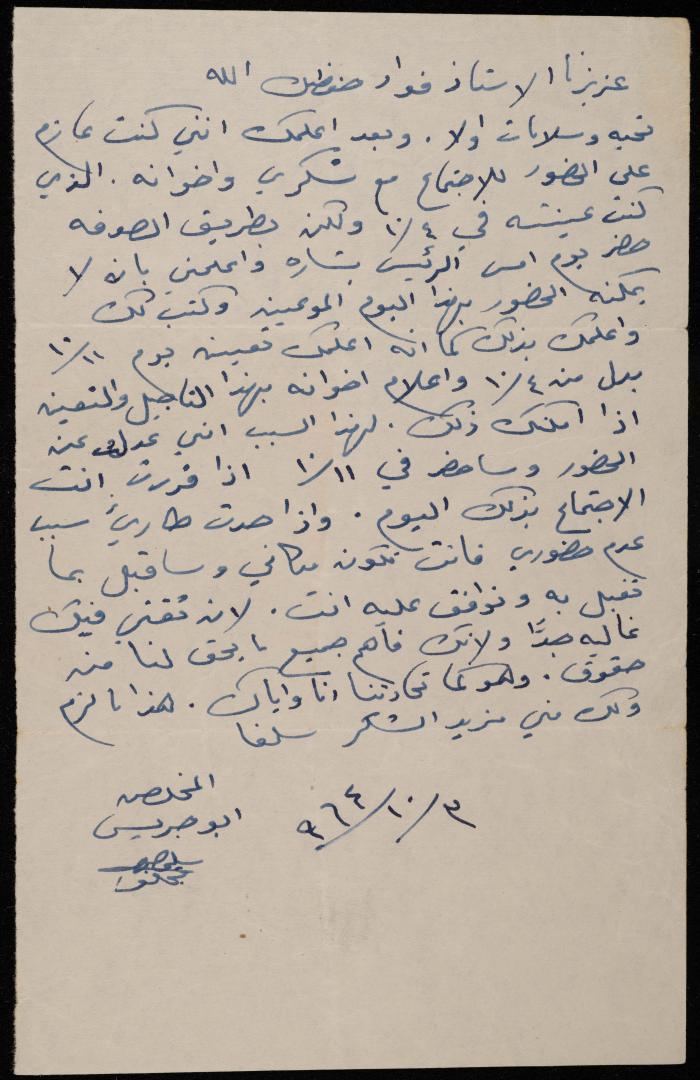 عزيزنا الاستاذ فواد حفظك الله
تحيه وسلامات اولا. وبعد اعلمك انني كنت عازم
على الحضور للاجتماع مع شكري واخوانه. الذي
كنت عينته في ١٠/٤ ولكن بطريق الصدفه
حضر يوم امس الرئيس بشاره واعلمني بانه لا
يمكنه الحضور بهذا اليوم الموعين وكتب لك
واعلمك بذلك كما انه اعلمك تعيينه يوم ١٠/١١
بدل من ١٠/٤ واعلام اخوانه بهذا التاجيل والتعيين
اذا امكنك ذلك. لهذا السبب انني عدلت عن
الحضور وساحضر في ١٠/١١ اذا قررت انت
الاجتماع بذلك اليوم. واذا حدث طاريء سبب
عدم حضوري فانت تكون مكاني وساقبل بما
تقبل به وتوافق عليه انت. لان ثقتي فيك
غاليه جدًا ولانك فاهم جميع ما يحق لنا من
حقوق. وهو كما تحادثنا انا واياك. هذا ما لزم
ولك مني مزيد الشكر سلفا
المخلص
ابو جريس
٩٦٤/١٠/٣